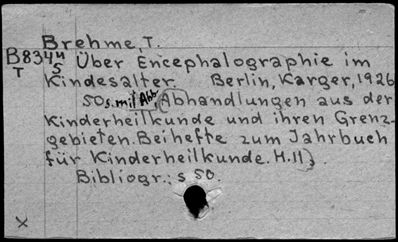 Brehme, T.
B834u Über Encephalographie im
T 5 Kindesalter. Berlin, Karger, 1926
50 s. mit Abb. (Abhandlungen aus der
Kinderheilkunde und ihren Grenz-
gebieten. Beihefte zum Jahrbuch
für Kinderheilkunde. H. 11).
Bibliogr.: s 50.
x